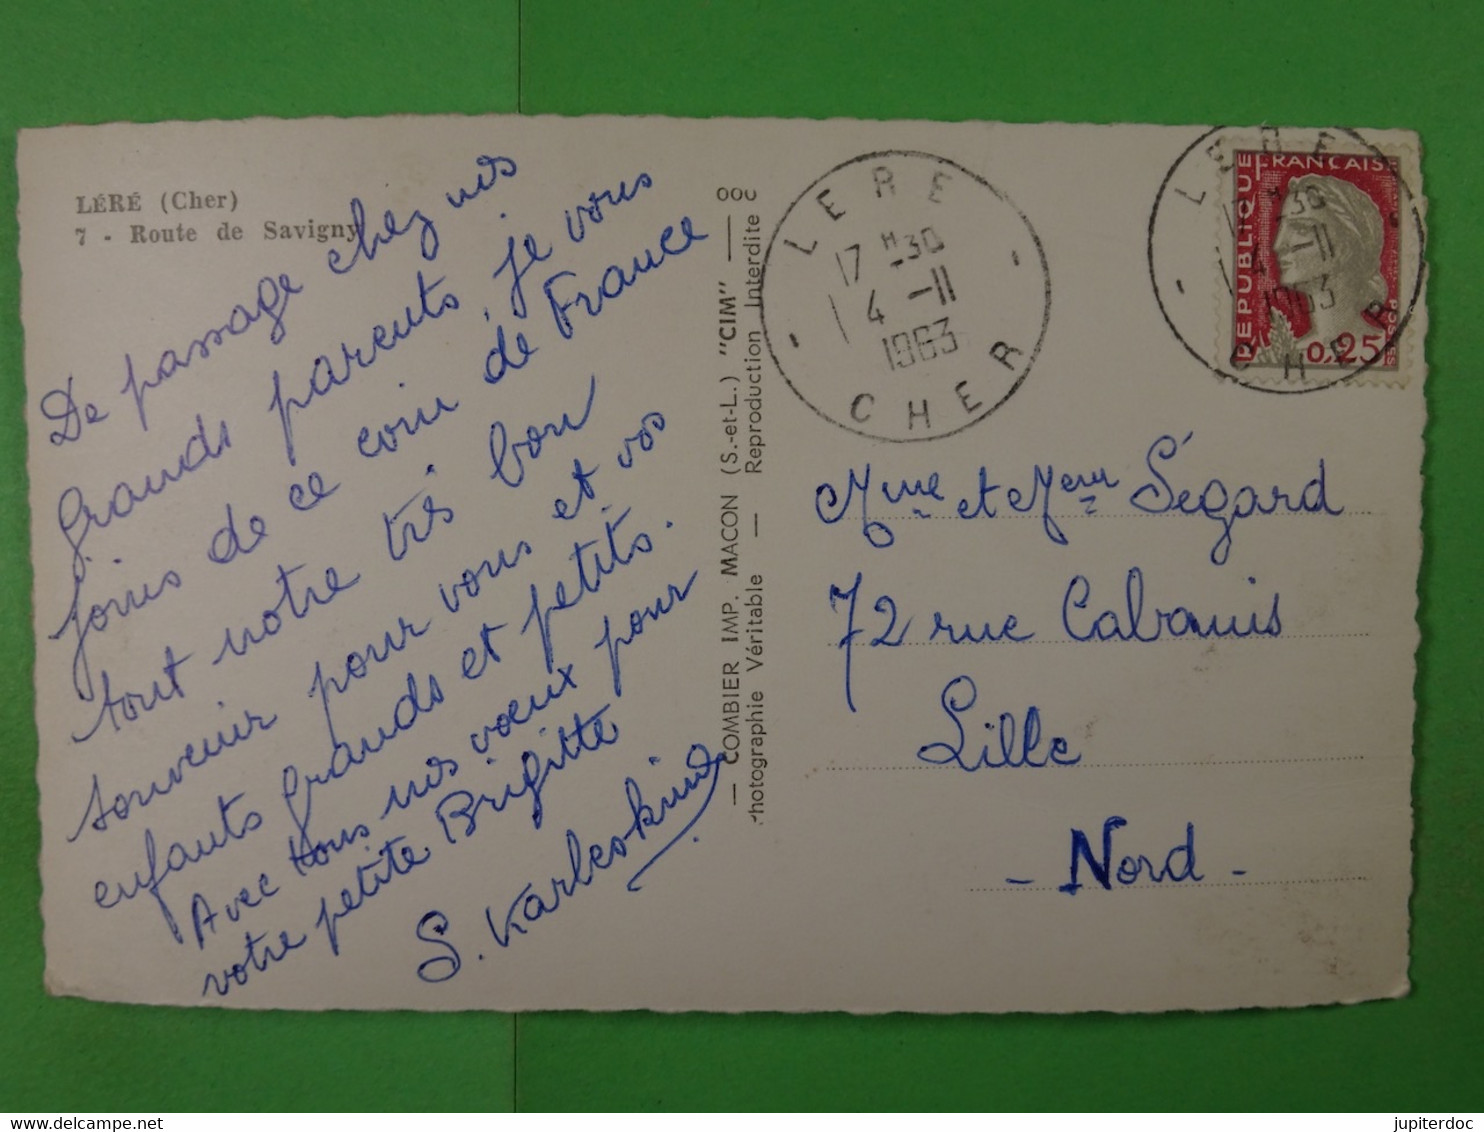 LÉRÉ (Cher)
7 - Route de Savigny
De passage chez nos
Grands parents, je vous
joins de ce coin de France
tout notre très bon
souvenir pour vous et vos
enfants grands et petits.
Avec tous nos vœux pour
votre petite Brigitte
S. Karleskind
COMBIER IMP. MACON (S.-et-L.) "CIM"
Photographie Véritable — Reproduction Interdite
LERE
17 H30
4 -11
1963
CHER
LERE
17 H30
4 -11
1963
CHER
REPUBLIQUE
FRANCAISE
0,25
POSTES
Mme et Meur Ségard
72 rue Cabanis
Lille
- Nord -
jupiterdoc